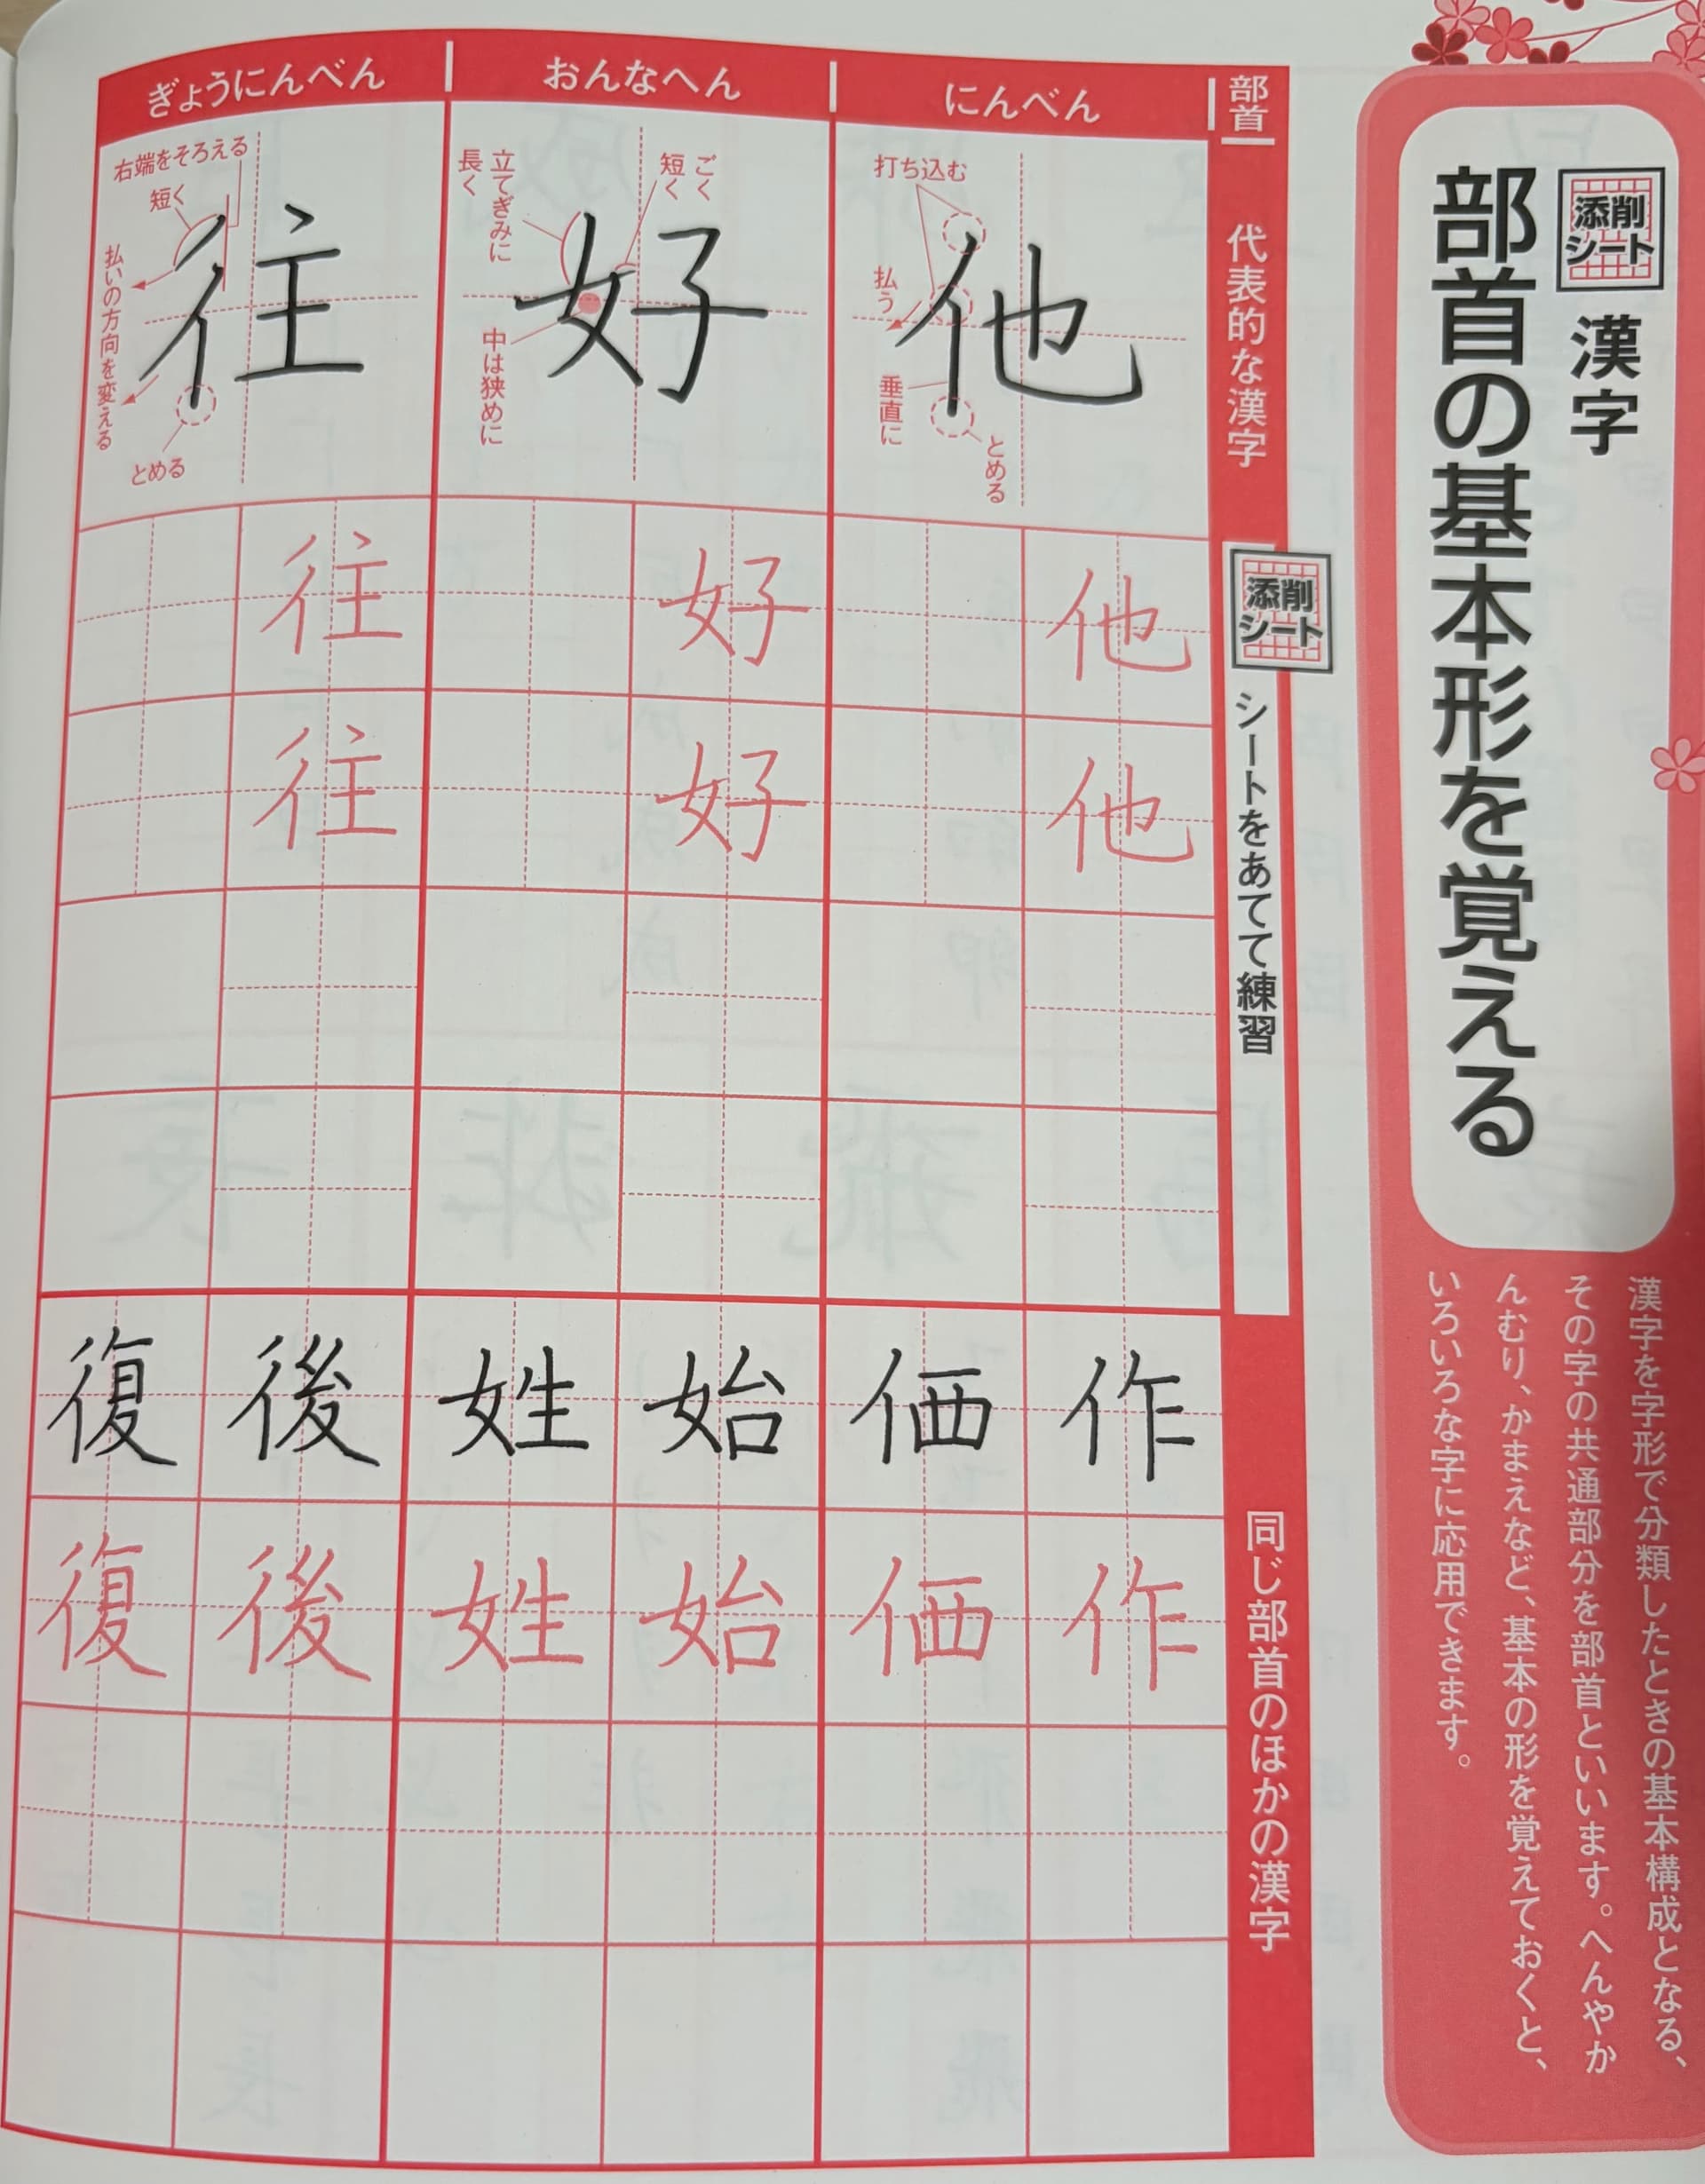 添削
シート
漢字
部首の基本形を覚える
漢字を字形で分類したときの基本構成となる、
その字の共通部分を部首といいます。へんやか
んむり、かまえなど、基本の形を覚えておくと、
いろいろな字に応用できます。
部首
代表的な漢字
添削
シート
シートをあてて練習
同じ部首のほかの漢字
にんべん
打ち込む
払う
垂直に
とめる
他
他
他
作
価
作
価
おんなへん
ごく
短く
立てぎみに
長く
中は狭めに
好
好
好
始
姓
始
姓
ぎょうにんべん
右端をそろえる
短く
払いの方向を変える
とめる
往
往
往
後
復
後
復